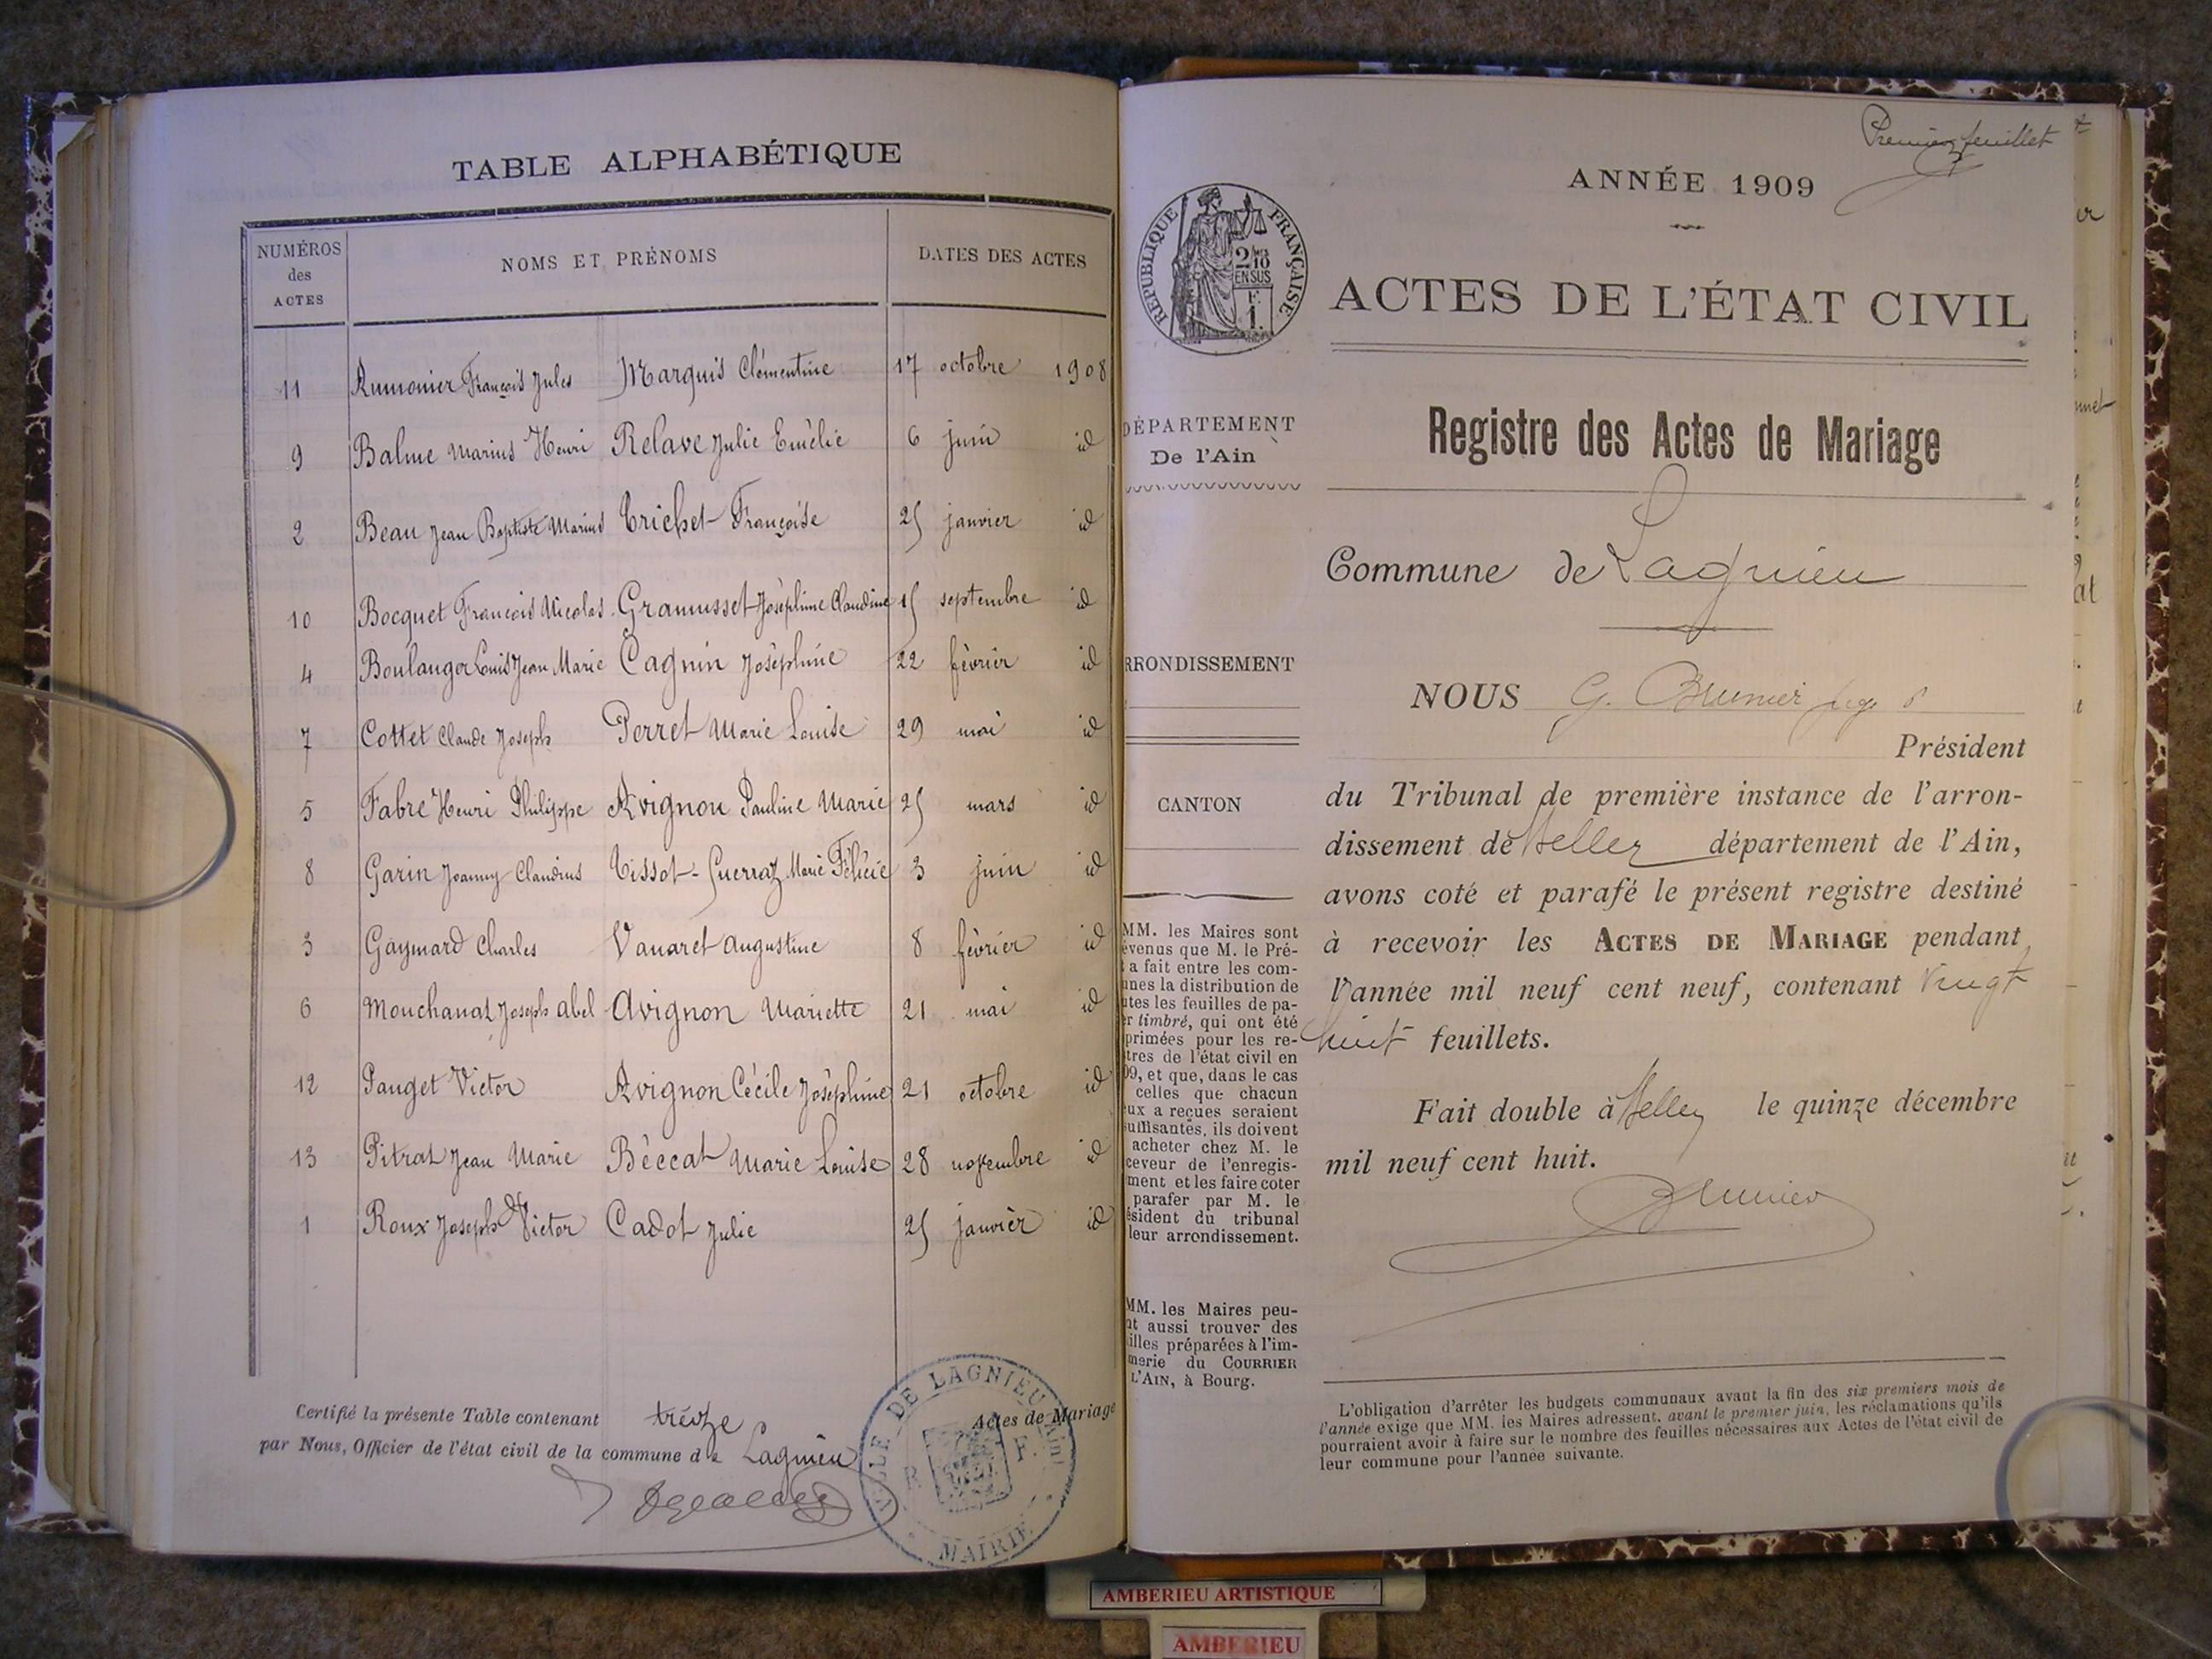 TABLE ALPHABÉTIQUE
NUMÉROS des ACTES
NOMS ET PRÉNOMS
DATES DES ACTES
11 Aumonier François Jules Marquis Clémentine 17 octobre 1908
9 Balme Marius Henri Relave Julie Emélie 6 juin id
2 Beau Jean Baptiste Marius Trichet Françoise 25 janvier id
10 Bocquet François Nicolas Gramusset Joséphine Claudine 15 septembre id
4 Boulanger Louis Jean Marie Cagnin Joséphine 22 février id
7 Cottet Claude Joseph Perret Marie Louise 29 mai id
5 Fabre Henri Philippe Avignon Pauline Marie 25 mars id
8 Garin Joanny Claudius Tissot-Guerraz Marie Félicie 3 juin id
3 Gaymard Charles Vanaret Augustine 8 février id
6 Mouchanat Joseph Abel Avignon Mariette 21 mai id
12 Pauget Victor Avignon Cécile Joséphine 21 octobre id
13 Pitrat Jean Marie Béccat Marie Louise 28 novembre id
1 Roux Joseph Victor Cadot Julie 25 janvier id
Certifié la présente Table contenant treize Actes de Mariage
par Nous, Officier de l'état civil de la commune de Lagnieu
DE LAGNIEU
R. F.
MAIRIE
Premier feuillet
ANNÉE 1909
RÉPUBLIQUE FRANÇAISE
2/10
EN SUS
F.
1.
ACTES DE L'ÉTAT CIVIL
Registre des Actes de Mariage
DÉPARTEMENT
De l'Ain
Commune de Lagnieu
RRONDISSEMENT
NOUS G. Brunier
Président
CANTON
du Tribunal de première instance de l'arron-
dissement de Belley département de l'Ain,
avons coté et parafé le présent registre destiné
à recevoir les ACTES DE MARIAGE pendant
l'année mil neuf cent neuf, contenant vingt
huit feuillets.
Fait double à Belley le quinze décembre
mil neuf cent huit.
Brunier
MM. les Maires sont
évenus que M. le Pré-
t a fait entre les com-
unes la distribution de
utes les feuilles de pa-
er timbré, qui ont été
primées pour les re-
tres de l'état civil en
09, et que, dans le cas
celles que chacun
eux a reçues seraient
suffisantes, ils doivent
acheter chez M. le
ceveur de l'enregis-
ment et les faire coter
parafer par M. le
ésident du tribunal
leur arrondissement.
MM. les Maires peu-
nt aussi trouver des
illes préparées à l'im-
merie du COURRIER
L'AIN, à Bourg.
L'obligation d'arrêter les budgets communaux avant la fin des six premiers mois de
l'année exige que MM. les Maires adressent, avant le premier juin, les réclamations qu'ils
pourraient avoir à faire sur le nombre des feuilles nécessaires aux Actes de l'état civil de
leur commune pour l'année suivante.
AMBERIEU ARTISTIQUE
AMBERIEU